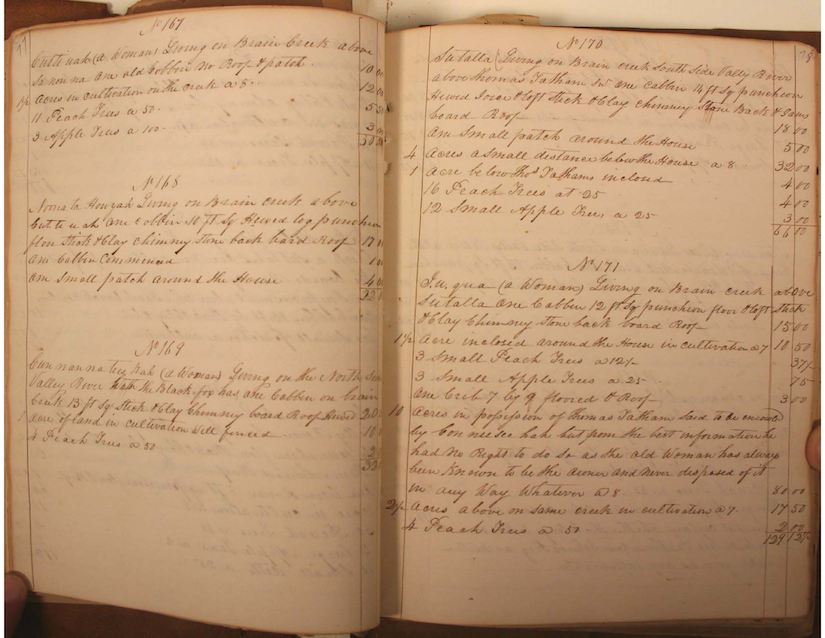 77
No 167
Cut te uah (a Woman) Living on Brain Creek above
So non na One old Cobbin No Roof & patch 10 00
1½ Acres in cultivation on the creek a 8. 12 00
11 Peach Trees a 50. 5 50
3 Apple Trees a 100. 3 00
30 50
No 168
Living on Brain creek above
Cut te u ah One cobbin 10 ft Sq Hewed log puncheon
floor Stick & Clay chimny stone back board Roof 17 00
One Cabbin Commenced
One Small patch around the House 4 00
22
No 169
(a Woman) Living on the North Side
Valley River the Black fox has one Cabbin on brain
Creek 13 ft Sq Stick & Clay Chimney board Roof Hewed 20
1 acre of land in cultivation well fenced 10
4 Peach Trees a 50 2
32
No 170
Sutalla (Living on Brain creek South Side Valley River
above Thomas Tatham Sr One cabbin 14 ft Sq puncheon
Hewed & loft Stick & Clay chimney Stone Back &
board Roof 18 00
One Small patch around the House 5 00
4 Acres a small distance below the House a 8. 32 00
1 Acre below Thos Tathams inclosed 4 00
16 Peach Trees at 25 4 00
12 Small Apple Trees a 25 3 00
66 00
No 171
(a Woman) Living on Brain creek above
Sutalla One Cabbin 12 ft Sq puncheon floor & loft Stick
& Clay Chimney stone back board Roof 15 00
1½ Acre inclosed around the House in cultivation a 7 10 50
3 Small Peach Trees a 12½ 37½
3 Small Apple Trees a 25 75
One Crib 7 by 9 floored & Roof 3 00
10 Acres in possession of Thomas Tatham said to be
by but from the best information he
had No Right to do so as the old Woman has always
been Known to be the owner and never disposed of it
in any Way Whatever a 8 80 00
2½ Acres above on same creek in cultivation a 7 17 50
4 Peach Trees a 50 2 00
129 12½